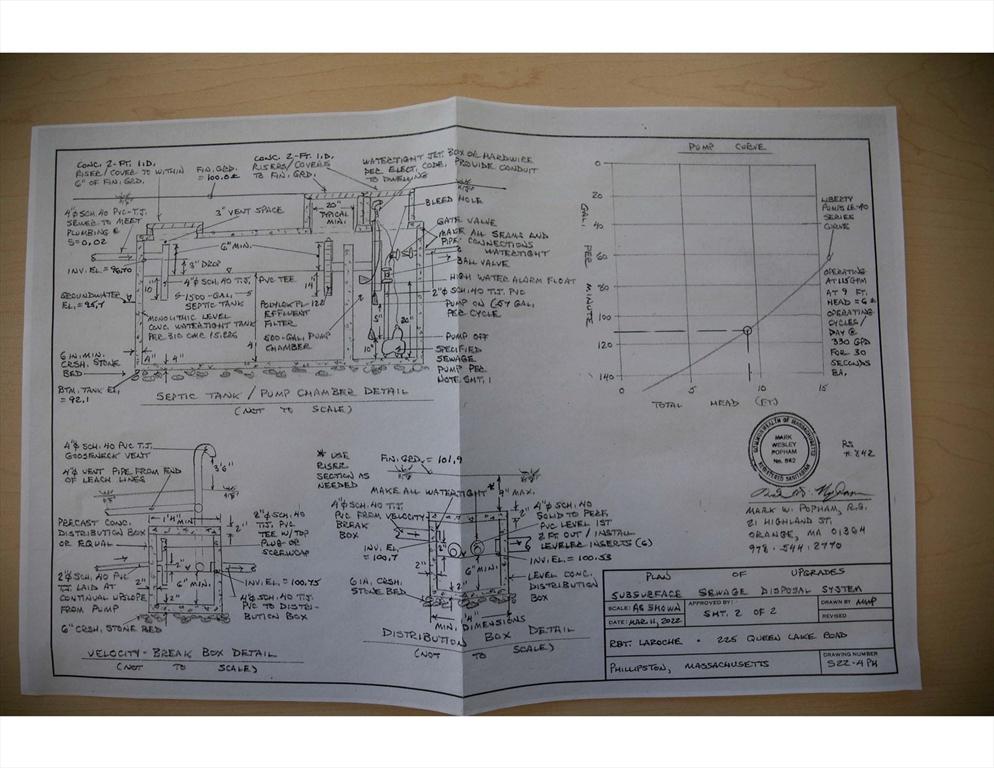 CONC. 2-FT. I.D.
RISER/COVER TO WITHIN
6" OF FIN. GRD.
FIN. GRD.
= 100.0±
CONC. 2-FT. I.D.
RISERS/COVERS
TO FIN. GRD.
WATERTIGHT JCT. BOX OR HARDWIRE
PER ELECT. CODE, PROVIDE CONDUIT
TO DWELLING
BLEED HOLE
4"φ SCH. 40 PVC-T.J.
SEWER TO MEET
PLUMBING &
S=0.02
3" VENT SPACE
20"
TYPICAL
MIN.
GATE VALVE
MAKE ALL SEAMS AND
PIPE CONNECTIONS
WATERTIGHT
BALL VALVE
6" MIN.
3" DROP
INV. EL. =
10"
4"φ SCH. 40 T.J. PVC TEE
14"
HIGH WATER ALARM FLOAT
2"φ SCH. 40 T.J. PVC
PUMP ON (57 GAL.
PER CYCLE
GROUNDWATER
EL. = 95.7
1500-GAL.
SEPTIC TANK
POLYLOK PL-122
EFFLUENT
FILTER
MONOLITHIC LEVEL
CONC. WATERTIGHT TANK
PER 310 CMR 15.226
500-GAL. PUMP
CHAMBER
5"
20"
10"
PUMP OFF
SPECIFIED
SEWAGE
PUMP PER
NOTE SHT. 1
6 IN. MIN.
CRSH. STONE
BED
4"
4"
BTM. TANK EL.
= 92.1
SEPTIC TANK / PUMP CHAMBER DETAIL
(NOT TO SCALE)
PUMP CURVE
0
20
40
60
80
100
120
140
GAL. PER MINUTE
0
5
10
15
TOTAL HEAD (FT)
LIBERTY
PUMPS LE-40
SERIES
CURVE
OPERATING
AT 115 GPM
AT 9 FT.
HEAD = 6±
OPERATING
CYCLES/
DAY @
330 GPD
FOR 30
SECONDS
EA.
4"φ SCH. 40 PVC T.J.
GOOSENECK VENT
4"φ VENT PIPE FROM END
OF LEACH LINES
3'6"
PRECAST CONC.
DISTRIBUTION BOX
OR EQUAL
1'4" MIN.
2"
2"φ SCH. 40
T.J. PVC
TEE W/TOP
PLUG OR
SCREWCAP
2"φ SCH. 40 PVC
T.J. LAID AT
CONTINUAL UPSLOPE
FROM PUMP
2"
2"
6" MIN.
INV. EL. = 100.75
4"φ SCH. 40 T.J.
PVC TO DISTRI-
BUTION BOX
2"
6" CRSH. STONE BED
VELOCITY-BREAK BOX DETAIL
(NOT TO SCALE)
* USE
RISER
SECTION AS
NEEDED
FIN. GRD. = 101.9
MAKE ALL WATERTIGHT
*
9" MAX.
4"φ SCH. 40 T.J.
PVC FROM VELOCITY
BREAK
BOX
2"
4"φ SCH. 40
SOLID TO PERF.
PVC LEVEL 1ST
2 FT OUT / INSTALL
LEVELER INSERTS (6)
INV. EL.
= 100.7
2"
6" MIN.
INV. EL. = 100.53
6 IN. CRSH.
STONE BED
2"
LEVEL CONC.
DISTRIBUTION
BOX
MIN. DIMENSIONS
DISTRIBUTION BOX DETAIL
(NOT TO SCALE)
COMMONWEALTH OF MASSACHUSETTS
MARK
WESLEY
POPHAM
No. 842
REGISTERED SANITARIAN
R.S.
# 842
MARK W. POPHAM, R.S.
21 HIGHLAND ST.
ORANGE, MA 01364
978-544-2770
PLAN OF UPGRADES
SUBSURFACE SEWAGE DISPOSAL SYSTEM
SCALE: AS SHOWN
APPROVED BY:
DRAWN BY MWP
DATE: MAR 11, 2022
SHT. 2 OF 2
REVISED
RBT. LAROCHE - 225 QUEEN LAKE ROAD
PHILLIPSTON, MASSACHUSETTS
DRAWING NUMBER
S22-4PH